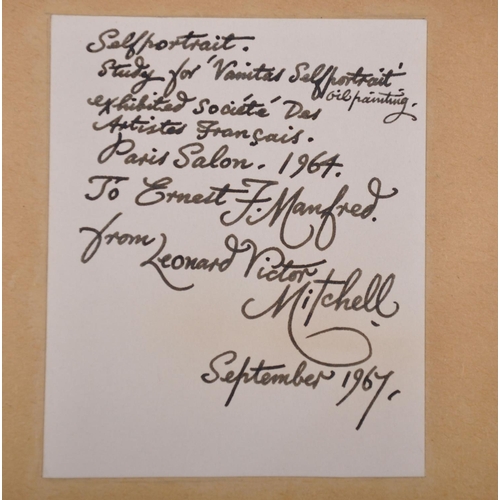 Selfportrait.
Study for 'Vanitas Selfportrait'
oil painting.
exhibited Société Des
Artistes Français.
Paris Salon. 1964.
To Ernest F. Manfred.
from Leonard Victor
Mitchell.
September 1967.